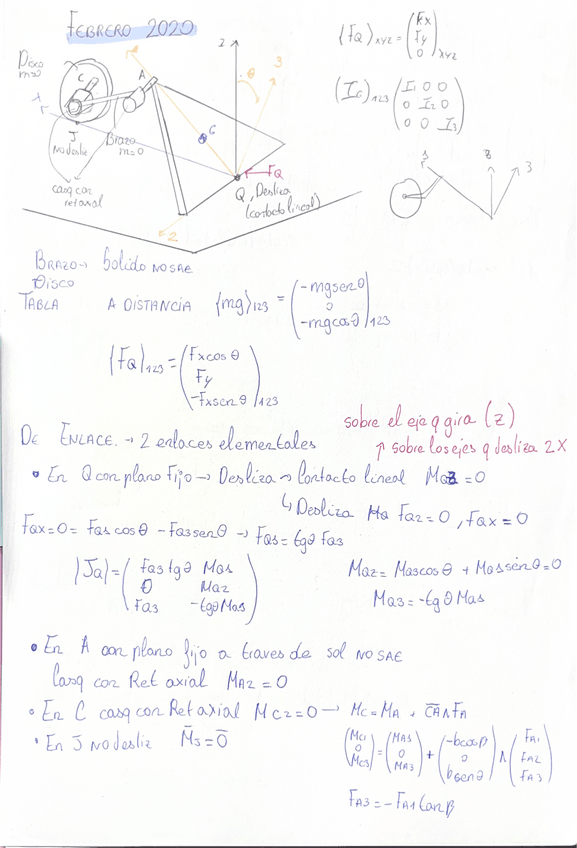 FEBRERO 2020
Disco
m=0
C
A
z
θ
3
1
J
No desliz
Brazo
m=0
G
FQ
Q, Desliza
(contacto lineal)
casq con
ret axial
2
{FQ}xyz = (Fx Fy 0)xyz
(IG)123 (I1 0 0
0 I2 0
0 0 I3)
1
z
3
BRAZO → Sólido NO SAE
DISCO
TABLA A DISTANCIA {mg}123 = (-mg senθ 0 -mg cosθ)123
{FQ}123 = (Fx cosθ Fy -Fx senθ)123
sobre el eje q gira (z)
DE ENLACE. → 2 enlaces elementales ↑ sobre los ejes q desliza 2X
• En Q con plano Fijo → Desliza → Contacto lineal MQZ = 0
↳ Desliza FQ2 = 0, FQX = 0
FQX = 0 = FQ1 cosθ - FQ3 senθ → FQ1 = tgθ FQ3
{JQ} = (FQ3 tgθ MQ1
0 MQ2
FQ3 -tgθ MQ1)
MQZ = MQ3 cosθ + MQ1 sinθ = 0
MQ3 = -tgθ MQ1
• En A con plano fijo a traves de sol NO SAE
Casq con Ret axial MA2 = 0
• En C casq con Ret axial MC2 = 0 → MC = MA + CA ∧ FA
• En J No desliz MJ = 0
(MC1 0 MC3) = (MA1 0 MA3) + (-b cosβ 0 b senθ) ∧ (FA1 FA2 FA3)
FA3 = -FA1 tanβ